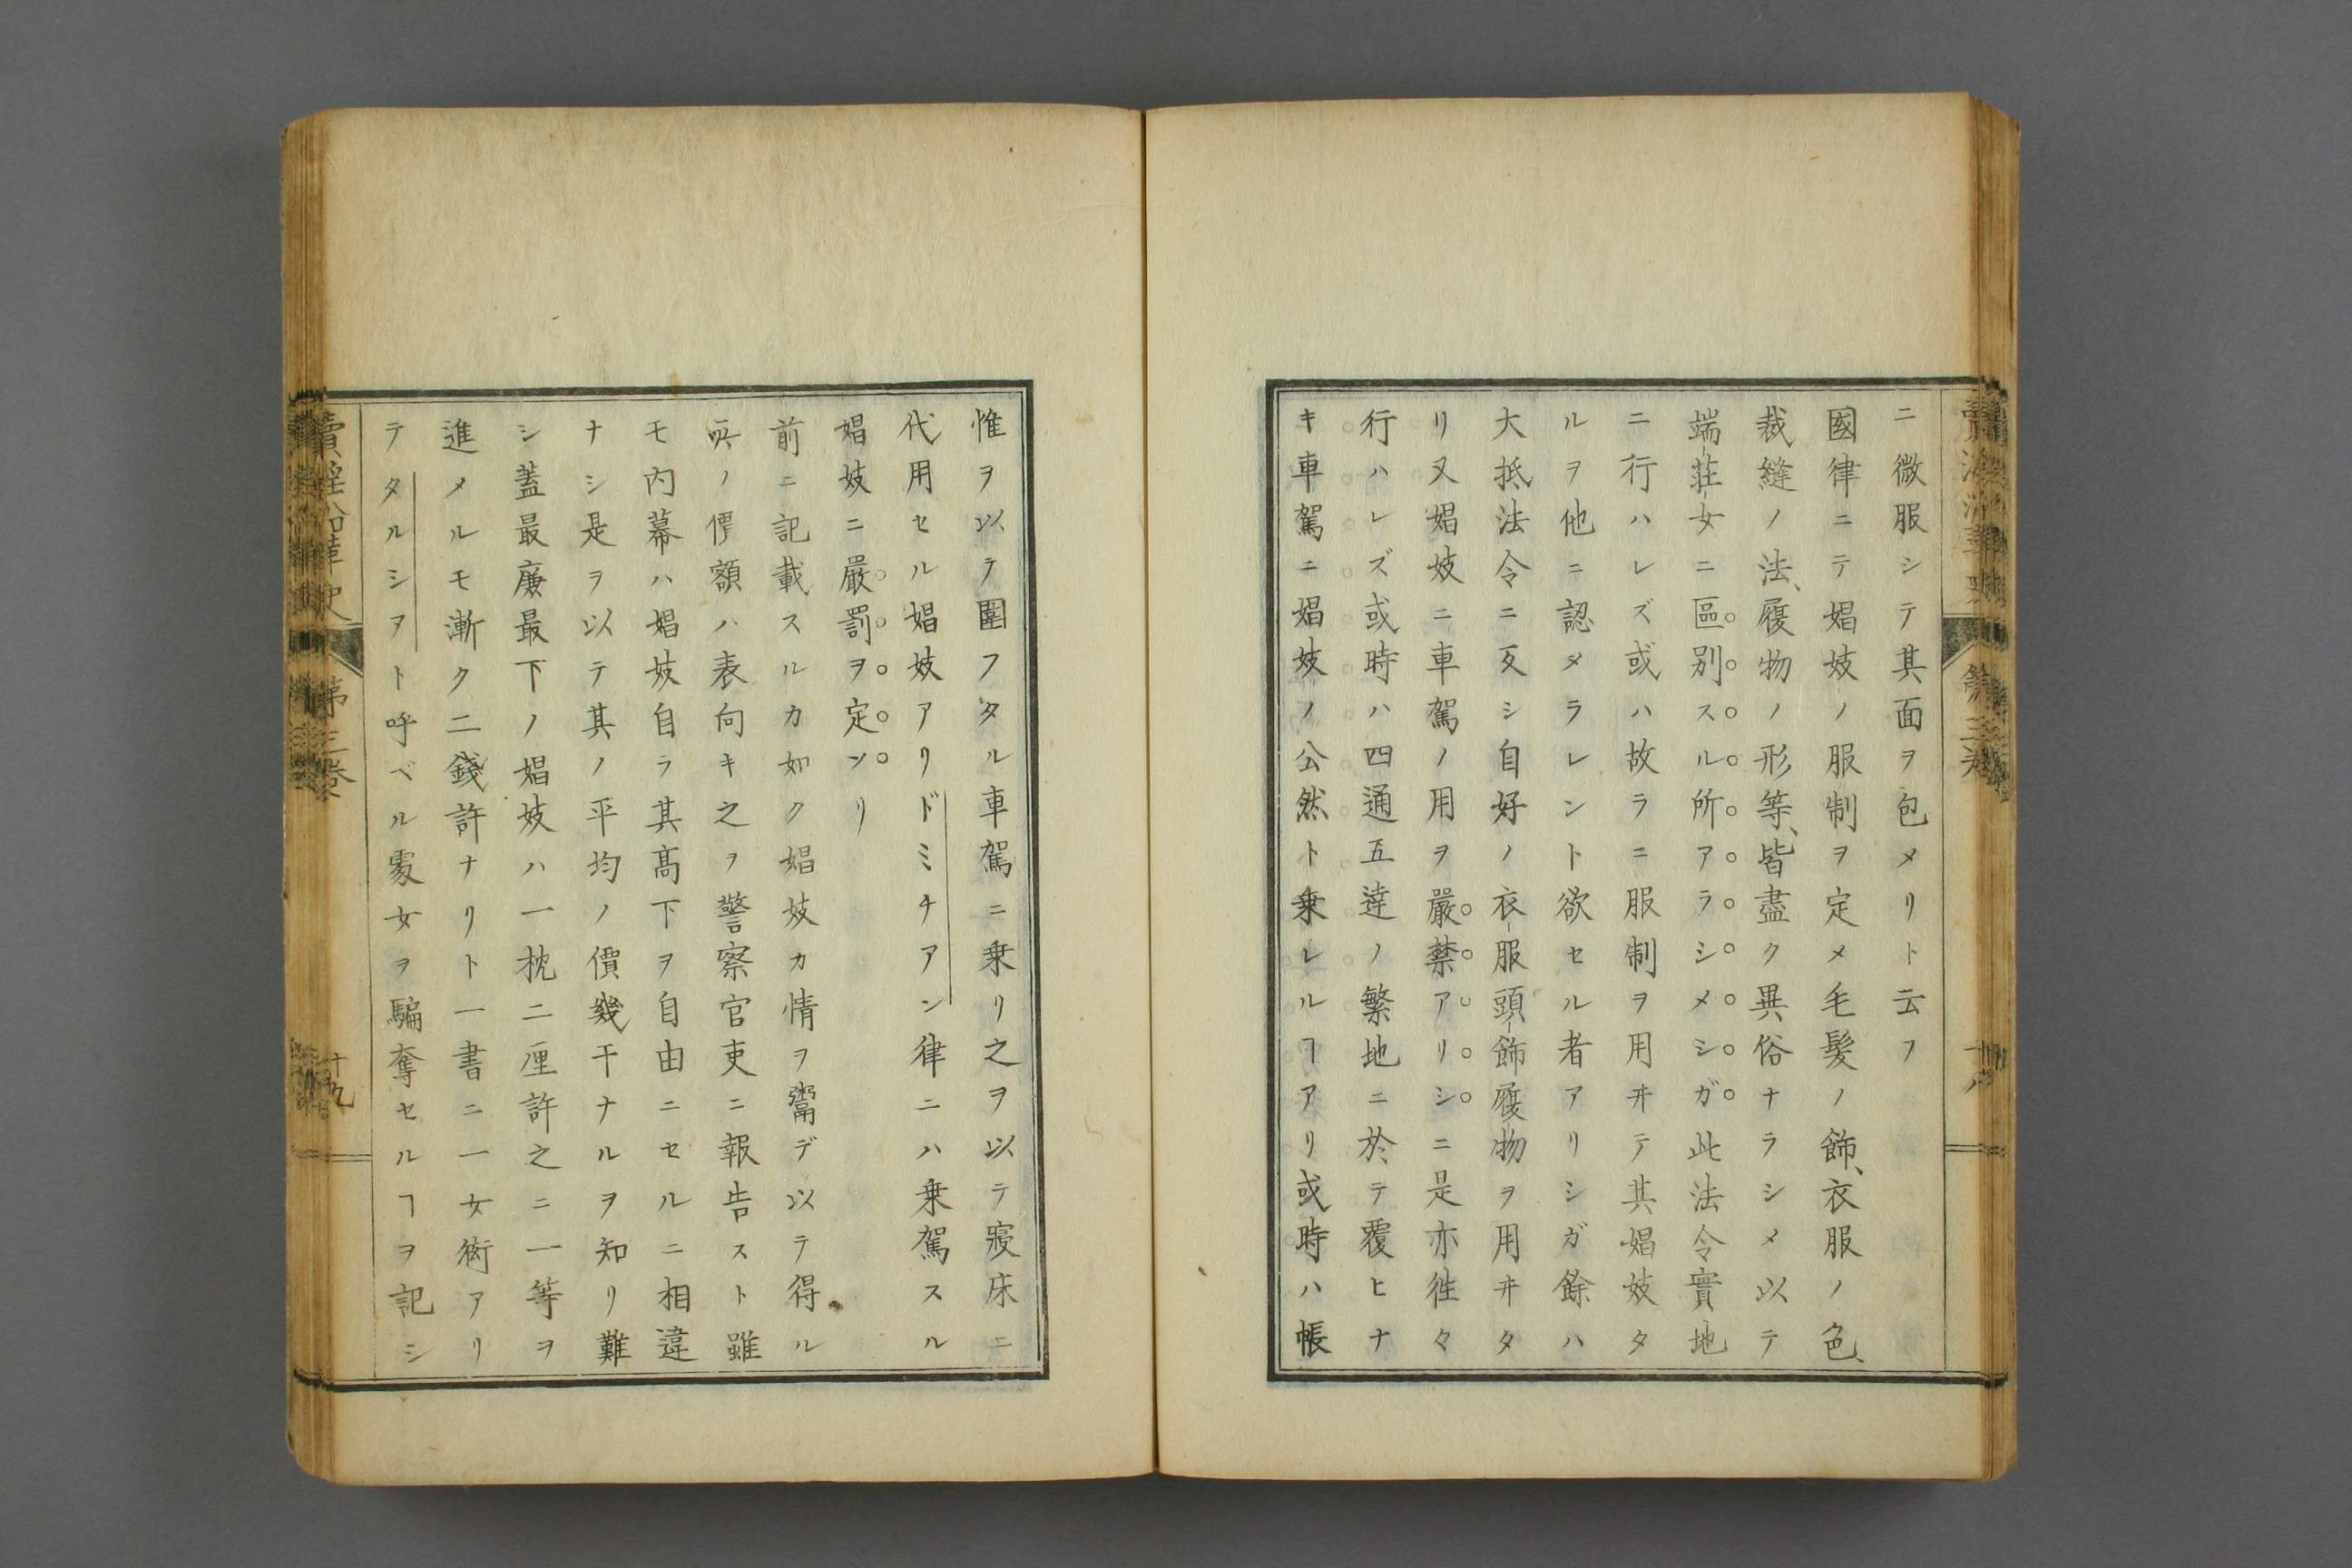 ニ微服シテ其面ヲ包メリト云フ
國律ニテ娼妓ノ服制ヲ定メ毛髮ノ飾、衣服ノ色、
裁縫ノ法、履物ノ形等、皆盡ク異俗ナラシメ以テ
端莊女ニ區別スル所アラシメシガ此法令實地
ニ行ハレズ或ハ故ラニ服制ヲ用ヰテ其娼妓タ
ルヲ他ニ認メラレント欲セル者アリシガ餘ハ
大抵法令ニ反シ自好ノ衣服頭飾履物ヲ用ヰタ
リ又娼妓ニ車駕ノ用ヲ嚴禁アリシニ是亦徃々
行ハレズ或時ハ四通五達ノ繁地ニ於テ覆ヒナ
キ車駕ニ娼妓ノ公然ト乗レルヿアリ或時ハ帳
惟ヲ以テ圍フタル車駕ニ乗リ之ヲ以テ寢床ニ
代用セル娼妓アリドミチアン律ニハ乗駕スル
娼妓ニ嚴罰ヲ定ンリ
前ニ記載スルカ如ク娼妓カ情ヲ鬻デ以テ得ル
所ノ價額ハ表向キ之ヲ警察官吏ニ報告スト雖
モ内幕ハ娼妓自ラ其髙下ヲ自由ニセルニ相違
ナシ是ヲ以テ其ノ平均ノ價幾干ナルヲ知リ難
シ蓋最廉最下ノ娼妓ハ一枕二厘許之ニ一等ヲ
進メルモ漸ク二錢許ナリト一書ニ一女衒アリ
テタルシアト呼ベル處女ヲ騙奪セルヿヲ記シ
賣淫沿革史
第三卷
十九